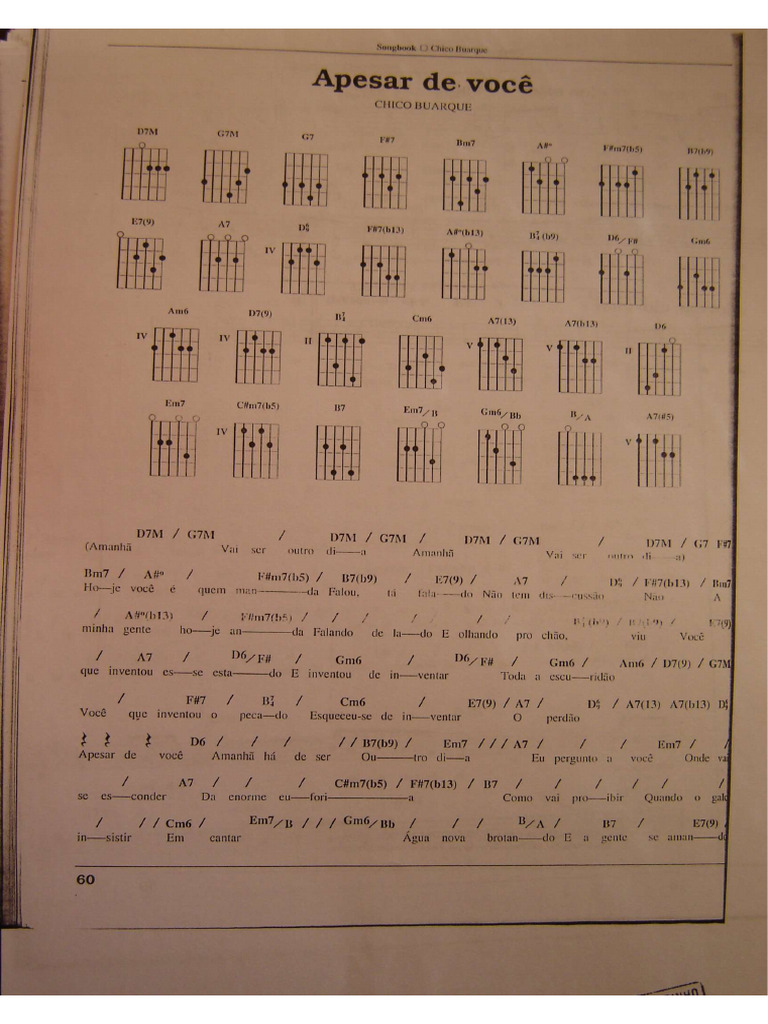 Songbook □ Chico Buarque
Apesar de você
CHICO BUARQUE
D7M G7M G7 F#7 Bm7 A#º F#m7(b5) B7(b9)
E7(9) A7 D6/9 F#7(b13) A#º(b13) B7/4(b9) D6/F# Gm6
IV
Am6 D7(9) B7/4 Cm6 A7(13) A7(b13) D6
IV IV II V V II
Em7 C#m7(b5) B7 Em7/B Gm6/Bb B/A A7(#5)
IV V
D7M / G7M / D7M / G7M / D7M / G7M / D7M / G7 F#7
(Amanhã Vai ser outro di—a Amanhã Vai ser outro di—a)
Bm7 / A#º / F#m7(b5) / B7(b9) / E7(9) / A7 / D6/9 / F#7(b13) / Bm7
Ho—je você é quem man———da Falou, tá fala—do Não tem dis—cussão Não A
/ A#º(b13) / F#m7(b5) / / / / / / / B7/4(b9) / B7(b9) / E7(9)
minha gente ho—je an———da Falando de la—do E olhando pro chão, viu Você
/ A7 / D6/F# / Gm6 / D6/F# / Gm6 / Am6 / D7(9) / G7M
que inventou es—se esta—do E inventou de in—ventar Toda a escu—ridão
/ F#7 / B7/4 / Cm6 / E7(9) / A7 / D6/9 / A7(13) A7(b13) D6/9
Você que inventou o peca—do Esqueceu-se de in—ventar O perdão
D6 / / / / / B7(b9) / Em7 / / / A7 / / / Em7 / /
Apesar de você Amanhã há de ser Ou—tro di—a Eu pergunto a você Onde vai
/ A7 / / / C#m7(b5) / F#7(b13) / B7 / / / / / /
se es—conder Da enorme eu—fori———a Como vai pro—ibir Quando o galo
/ / / Cm6 / Em7/B / / / Gm6/Bb / / / B/A / B7 / E7(9) /
in—sistir Em cantar Água nova brotan—do E a gente se aman—do
60